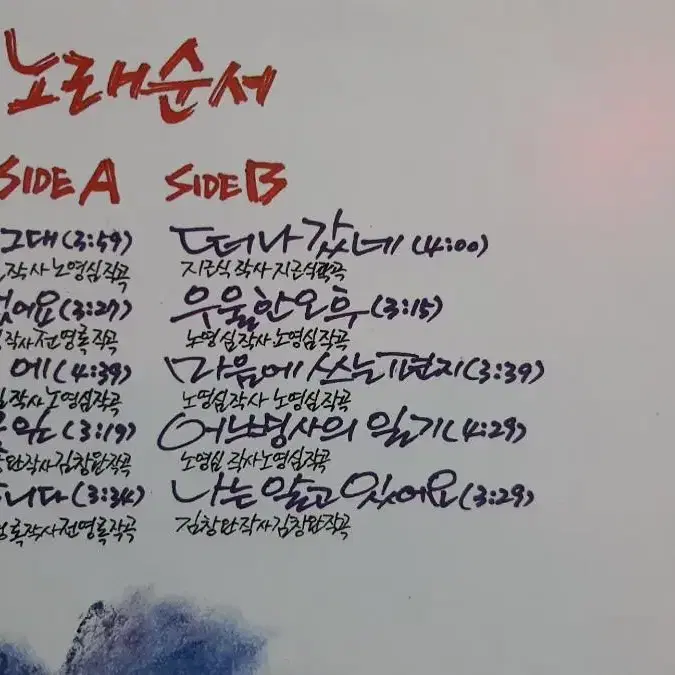 노래순서
SIDE A
그대(3:59)
작사 노영심작곡
었어요(3:27)
작사전영록작곡
에(4:39)
작사노영심작곡
(3:19)
작사김창완작곡
니다(3:34)
록작사전영록작곡
SIDE B
떠나갔네(4:00)
지근식 작사 지근식작곡
우울한오후(3:15)
노영심작사 노영심작곡
마음에 쓰는 편지(3:39)
노영심작사 노영심작곡
어느병사의 일기(4:29)
노영심 작사노영심작곡
나는알고있어요(3:29)
김창완작사김창완작곡